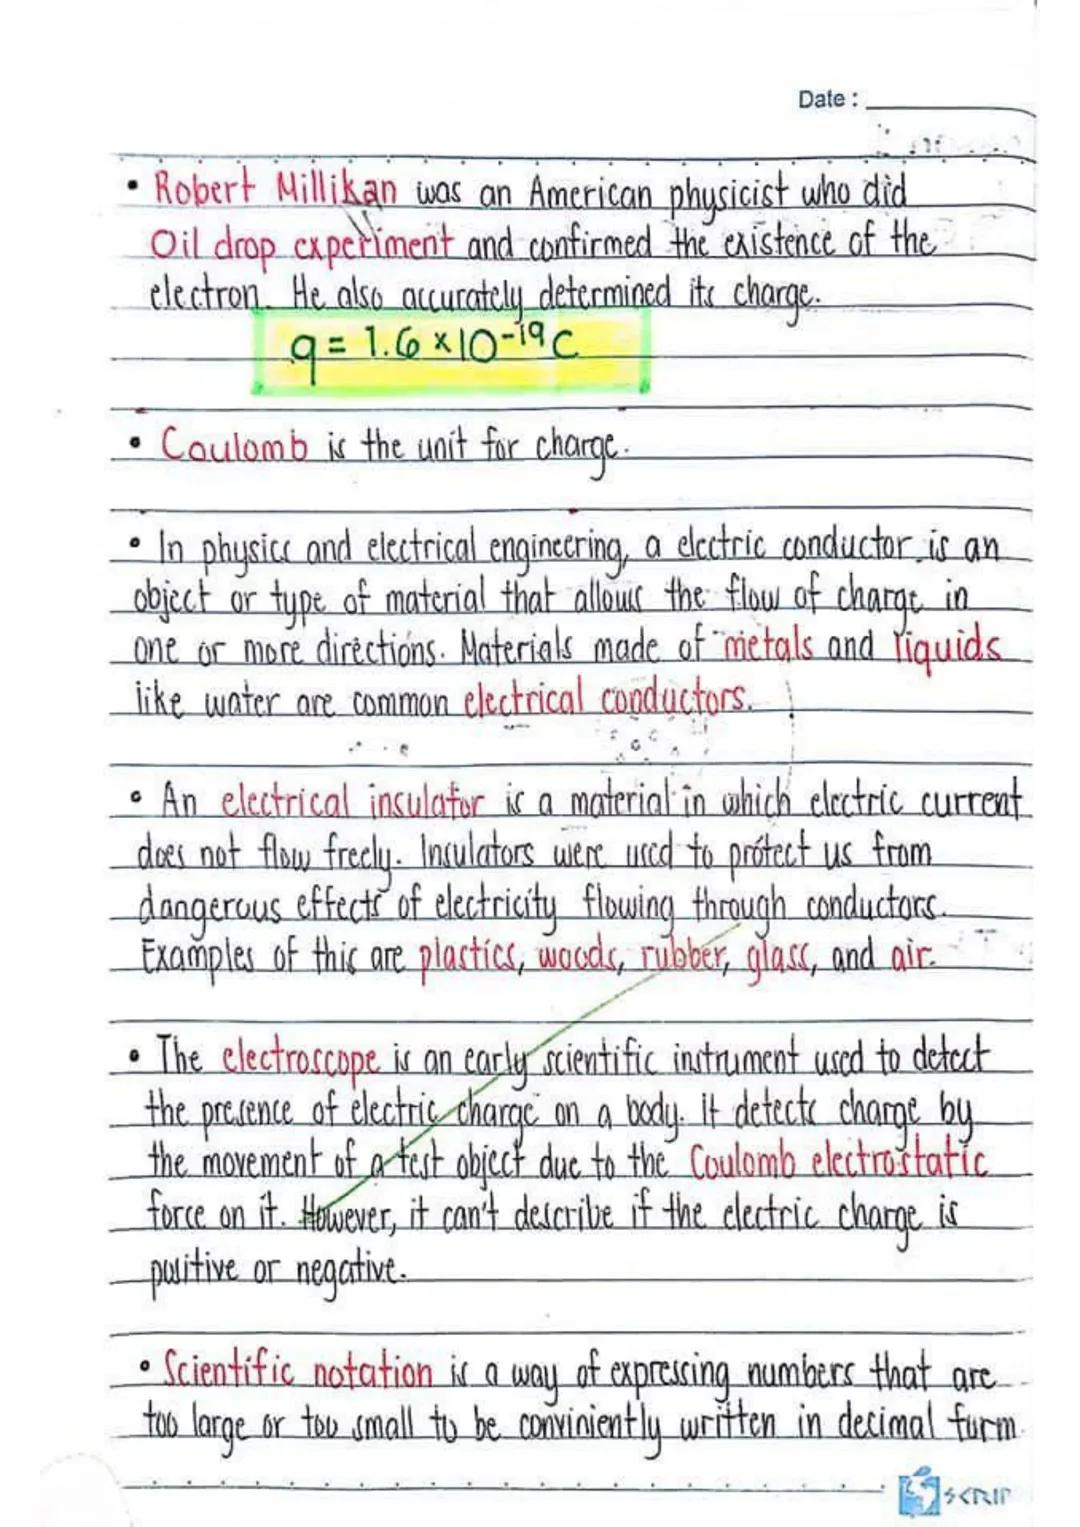 Date :
• Robert Millikan was an American physicist who did
Oil drop experiment and confirmed the existence of the
electron. He also accurately determined its charge.
q = 1.6 × 10⁻¹⁹ C
• Coulomb is the unit for charge.
• In physics and electrical engineering, a electric conductor is an
object or type of material that allows the flow of charge in
one or more directions. Materials made of metals and liquids
like water are common electrical conductors.
• An electrical insulator is a material in which electric current
does not flow freely. Insulators were used to protect us from
dangerous effects of electricity flowing through conductors.
Examples of this are plastics, woods, rubber, glass, and air.
• The electroscope is an early scientific instrument used to detect
the presence of electric charge on a body. It detects charge by
the movement of a test object due to the Coulomb electrostatic
force on it. However, it can't describe if the electric charge is
positive or negative.
• Scientific notation is a way of expressing numbers that are
too large or too small to be conviniently written in decimal form.